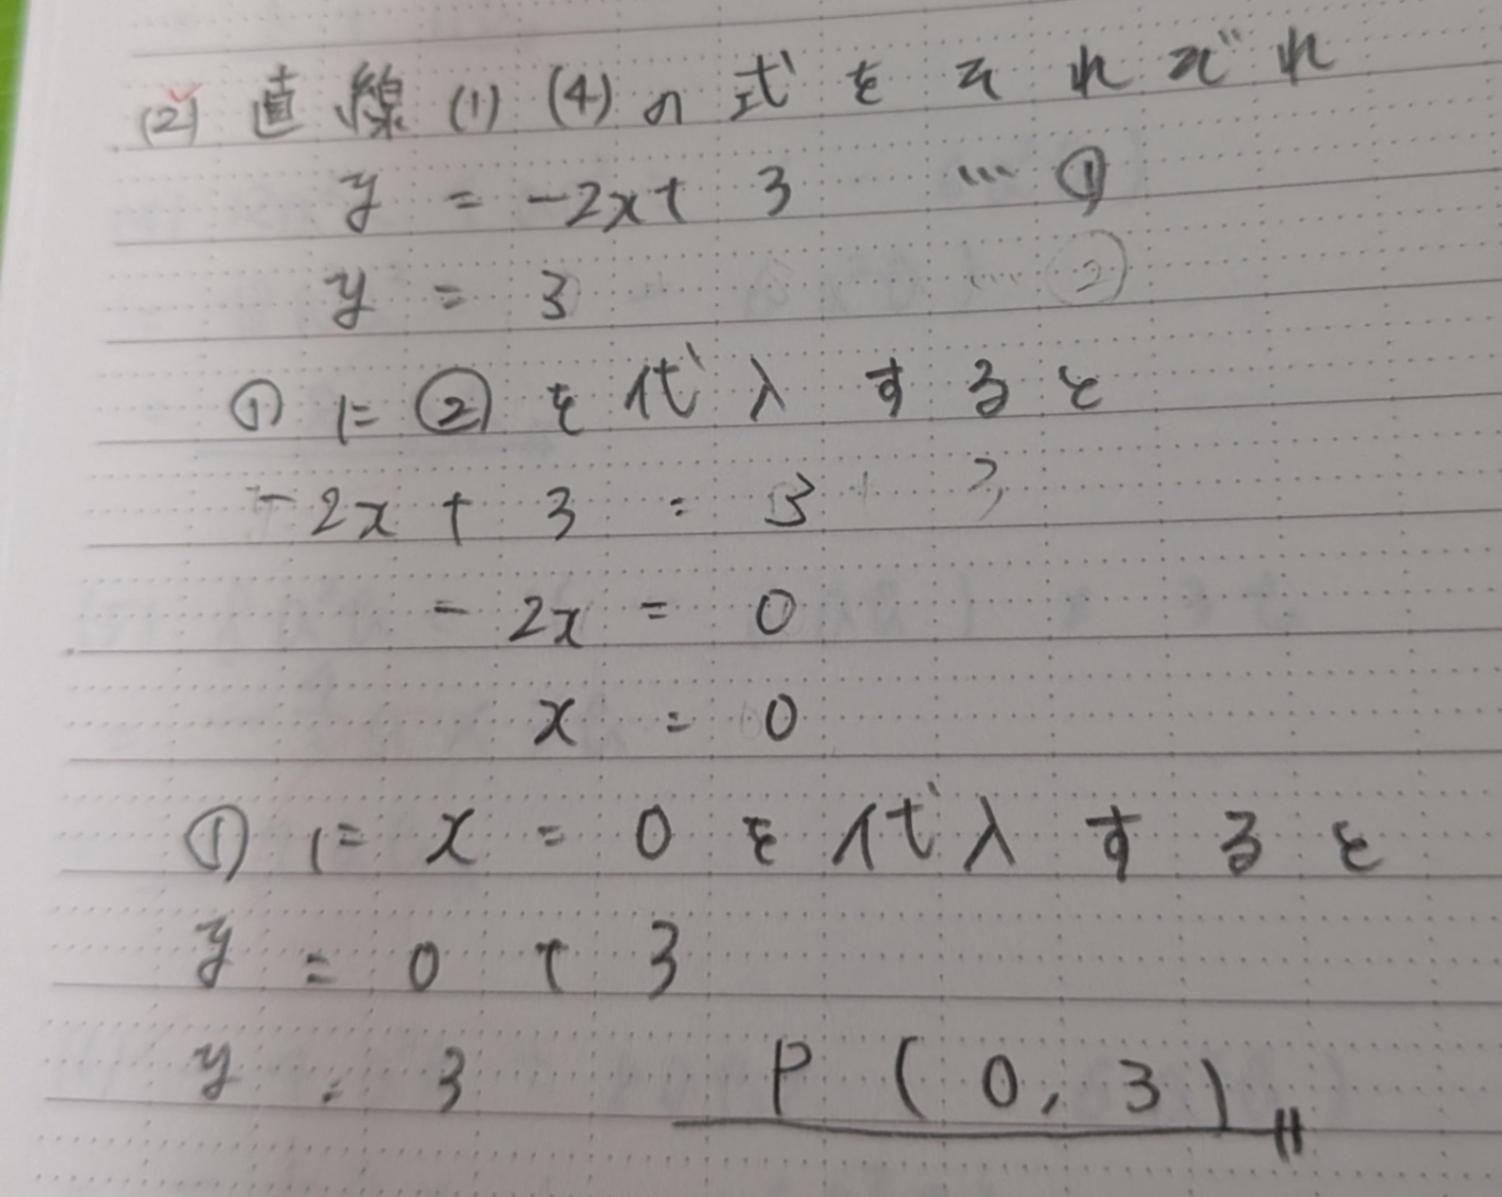 (2) 直線(1)(4)の式をそれぞれ
y = -2x+ 3 … ①
y = 3 … ②
①に②を代入すると
-2x + 3 = 3
- 2x = 0
x = 0
①にx = 0を代入すると
y = 0 + 3
y = 3 P(0, 3)